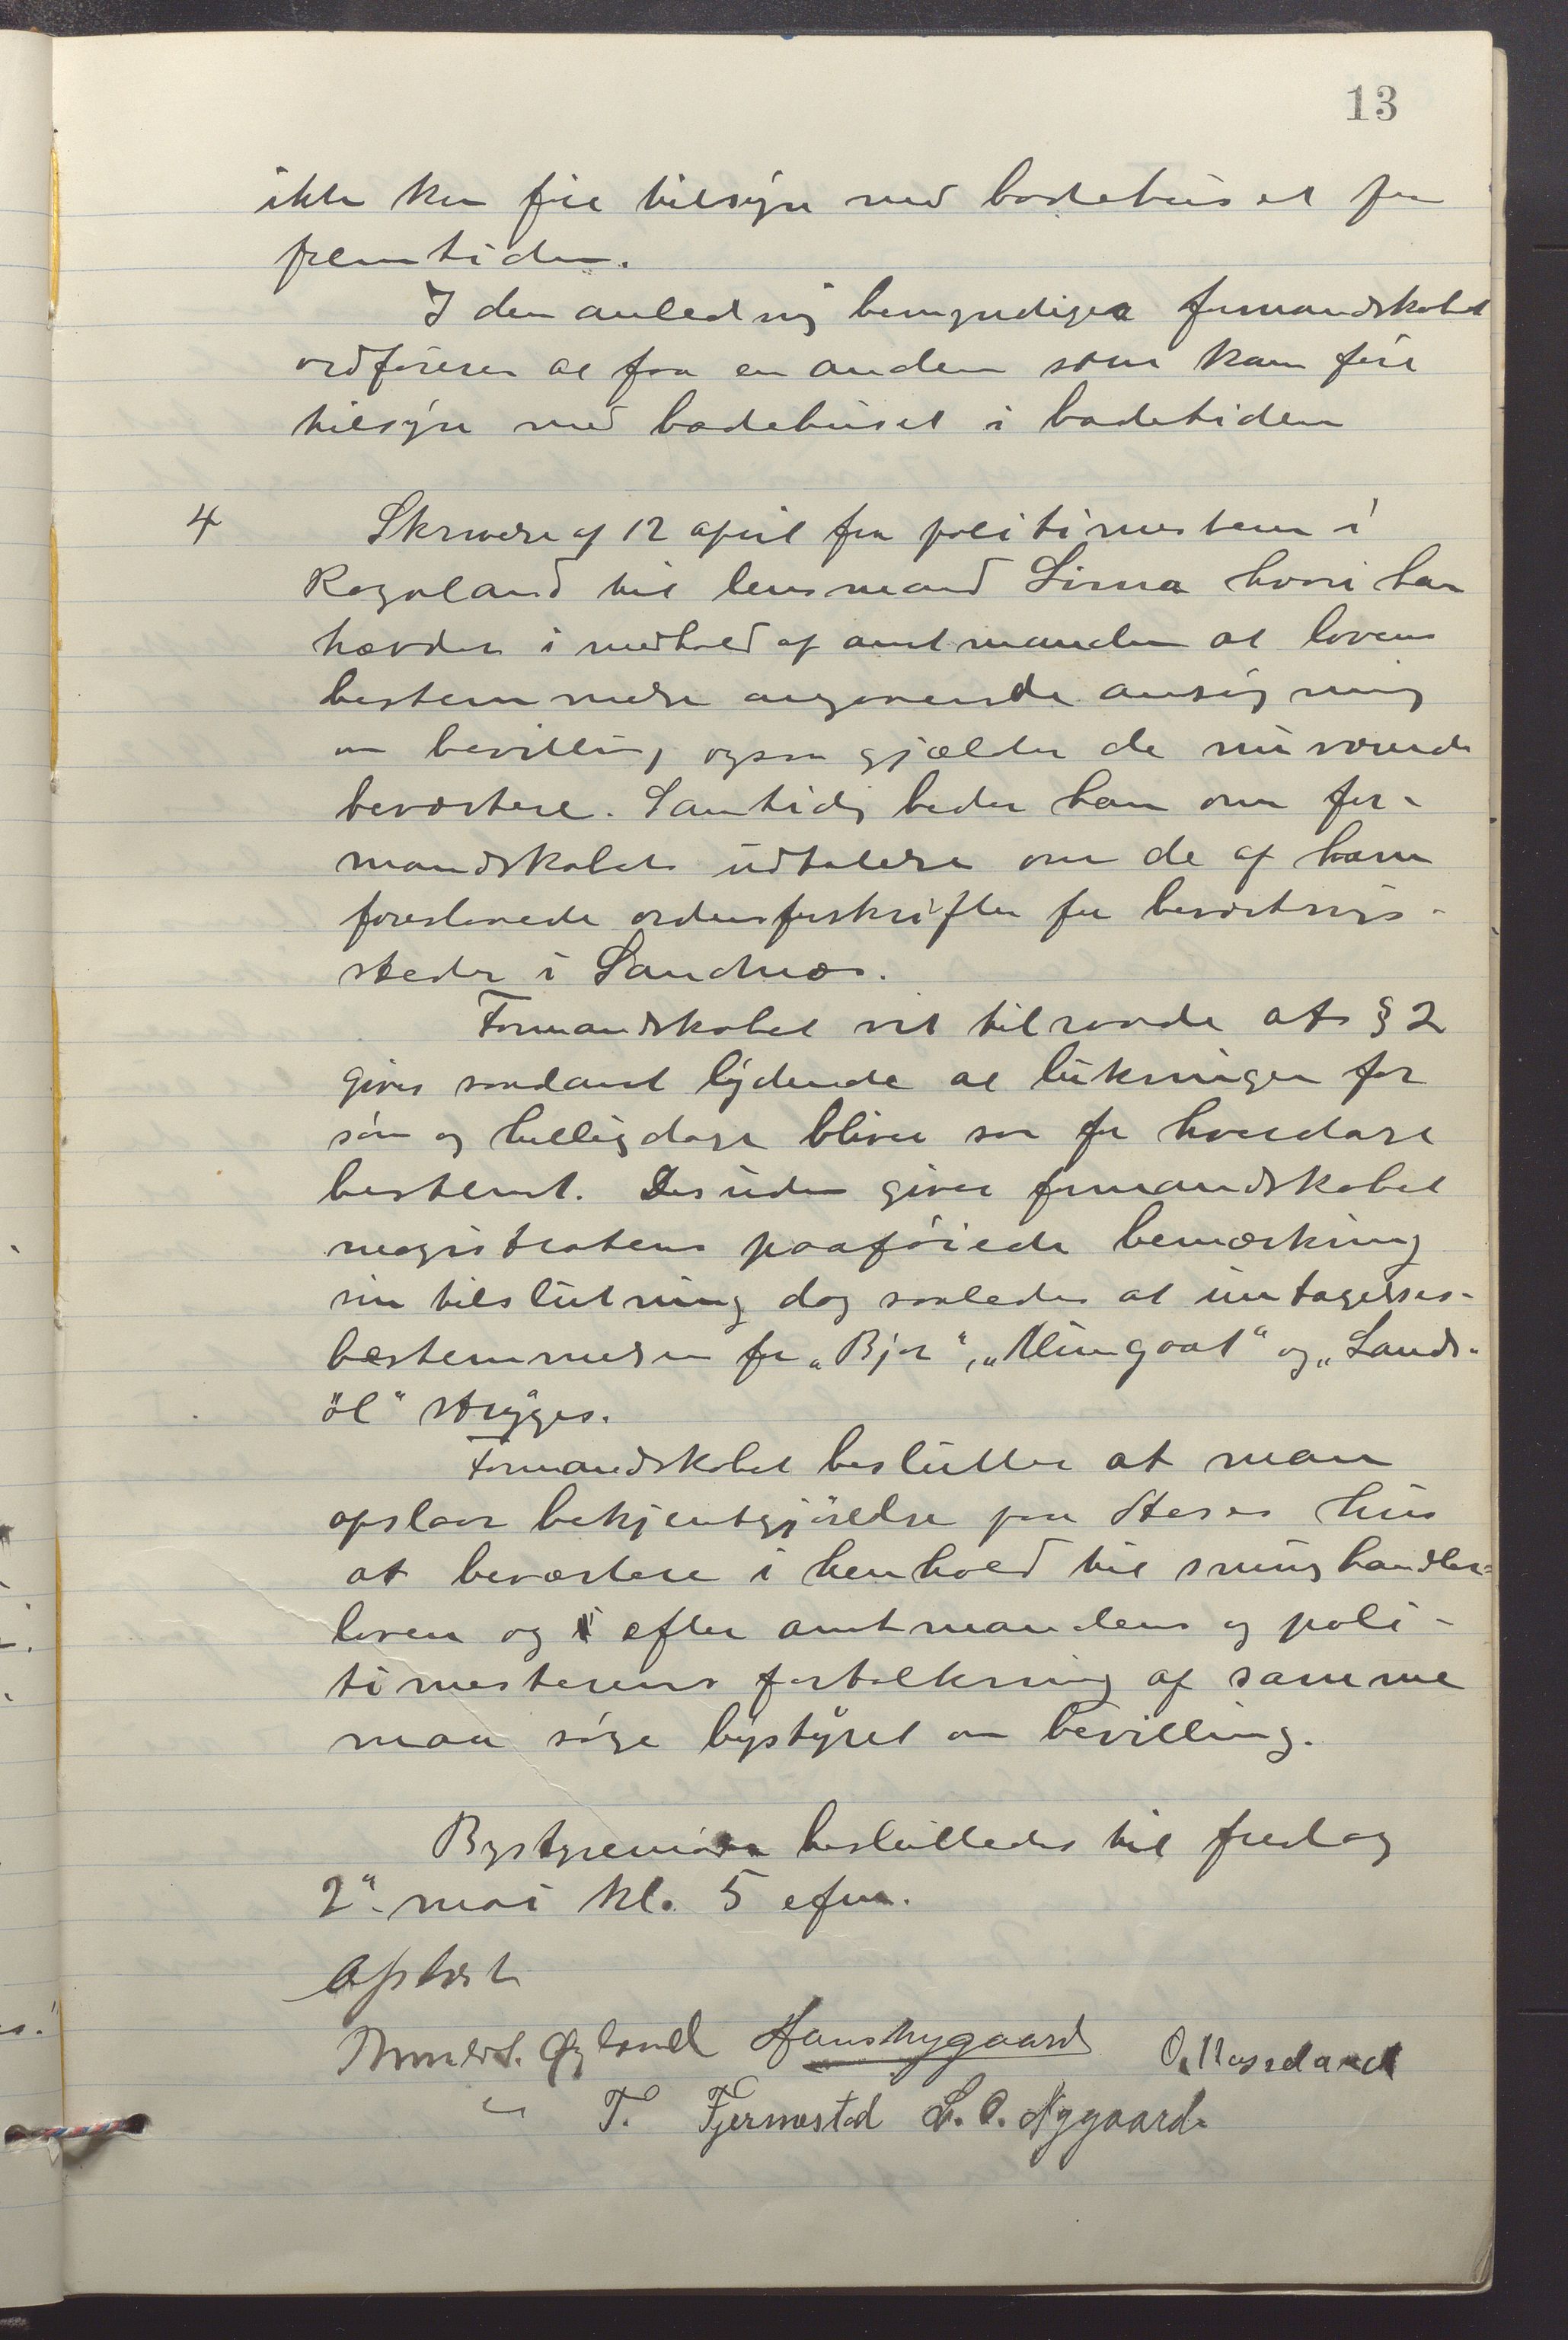 13
ikke kan føre tilsyn med badehuset for
fremtiden.
I den anledning bemyndiger formandskabet
ordføreren at faa en anden som kan føre
tilsyn med badehuset i badetiden
4 Skrivelse af 12 april fra politimesteren i
Rogaland til lensmand Lima hvori han
hævder i medhold af amtmanden at lovens
bestemmelse angaaende ansøgning
om bevilling ogsaa gjælder de nuværende
beværtere. Samtidig beder han om for-
mandskabets udtalelse om de af ham
foreslaaede ordensforskrifter for beværtnings-
steder i Sandnæs.
Formandskabet vil tilraade at § 2
gives saadant lydende at lukningen for
søn og helligdage bliver som for hverdage
bestemt. Desuden giver formandskabet
magistratens paaføiede bemærkning
sin tilslutning dog saaledes at undtagelses-
bestemmelsen for „Bjor", „Mungaat" og „Lands-
øl" stryges.
Formandskabet beslutter at man
opslaar bekjentgjørelse paa Stasres hus
at beværtere i henhold til smughandler-
loven og efter amtmandens og poli-
timesterens fortolkning af samme
maa søge bystyret om bevilling.
Bystyremøde besluttedes til fredag
2. mai kl. 5 efm.
Oplæst
Øgland Hans Nygaard O. Massdand
T. Fjermestad L. O. Nygaard